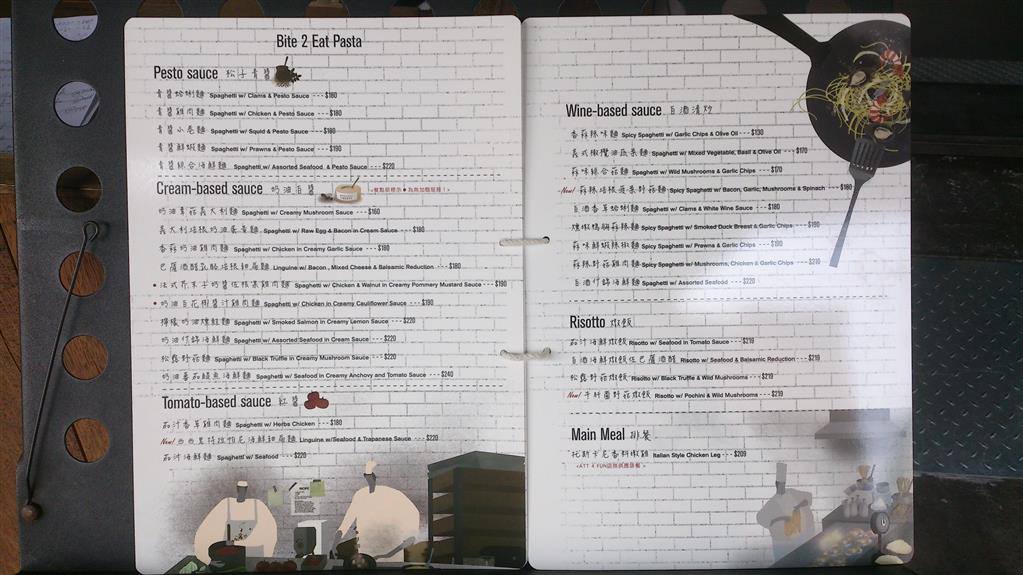 Bite 2 Eat Pasta
Pesto sauce 松子青醬
青醬蛤蜊麵 Spaghetti w/ Clams & Pesto Sauce --- $180
青醬雞肉麵 Spaghetti w/ Chicken & Pesto Sauce --- $180
青醬小卷麵 Spaghetti w/ Squid & Pesto Sauce --- $180
青醬鮮蝦麵 Spaghetti w/ Prawns & Pesto Sauce --- $190
青醬綜合海鮮麵 Spaghetti w/ Assorted Seafood & Pesto Sauce --- $220
Cream-based sauce 奶油白醬
奶油蕈菇義大利麵 Spaghetti w/ Creamy Mushroom Sauce --- $160
義大利培根奶油蛋黃麵 Spaghetti w/ Raw Egg & Bacon in Cream Sauce --- $180
香蒜奶油雞肉麵 Spaghetti w/ Chicken in Creamy Garlic Sauce --- $180
巴薩酒醋乳酪培根細扁麵 Linguine w/ Bacon , Mixed Cheese & Balsamic Reduction --- $180
• 法式芥末子奶醬佐核果雞肉麵 Spaghetti w/ Chicken & Walnut in Creamy Pommery Mustard Sauce --- $190
• 奶油白花椰醬汁雞肉麵 Spaghetti w/ Chicken in Creamy Cauliflower Sauce --- $190
檸檬奶油燻鮭麵 Spaghetti w/ Smoked Salmon in Creamy Lemon Sauce --- $220
奶油什錦海鮮麵 Spaghetti w/ Assorted Seafood in Cream Sauce --- $220
松露野菇麵 Spaghetti w/ Black Truffle in Creamy Mushroom Sauce --- $220
奶油蕃茄鯷魚海鮮麵 Spaghetti w/ Seafood in Creamy Anchovy and Tomato Sauce --- $240
Tomato-based sauce 紅醬
茄汁香草雞肉麵 Spaghetti w/ Herbs Chicken --- $180
New! 西西里特拉帕尼海鮮細扁麵 Linguine w/Seafood & Trapanese Sauce --- $220
茄汁海鮮麵 Spaghetti w/ Seafood --- $220
Wine-based sauce 白酒清炒
香蒜辣味麵 Spicy Spaghetti w/ Garlic Chips & Olive Oil --- $130
義式橄欖油蔬菜麵 Spaghetti w/ Mixed Vegetable, Basil & Olive Oil --- $170
蒜味綜合菇麵 Spaghetti w/ Wild Mushrooms & Garlic Chips --- $170
New! 蒜辣培根菠菜野菇麵 Spicy Spaghetti w/ Bacon, Garlic, Mushrooms & Spinach --- $180
白酒香草蛤蜊麵 Spaghetti w/ Clams & White Wine Sauce --- $180
燻嫩鴨胸蒜辣麵 Spicy Spaghetti w/ Smoked Duck Breast & Garlic Chips --- $190
蒜味鮮蝦辣椒麵 Spicy Spaghetti w/ Prawns & Garlic Chips --- $190
蒜辣野菇雞肉麵 Spicy Spaghetti w/ Mushrooms, Chicken & Garlic Chips --- $210
白酒什錦海鮮麵 Spaghetti w/ Assorted Seafood --- $220
Risotto 燉飯
茄汁海鮮燉飯 Risotto w/ Seafood in Tomato Sauce --- $219
白酒海鮮燉飯佐巴薩酒醋 Risotto w/ Seafood & Balsamic Reduction --- $219
松露野菇燉飯 Risotto w/ Black Truffle & Wild Mushrooms --- $219
New! 牛肝菌野菇燉飯 Risotto w/ Pochini & Wild Mushrooms --- $219
Main Meal 排餐
托斯卡尼香料嫩雞 Italian Style Chicken Leg --- $209